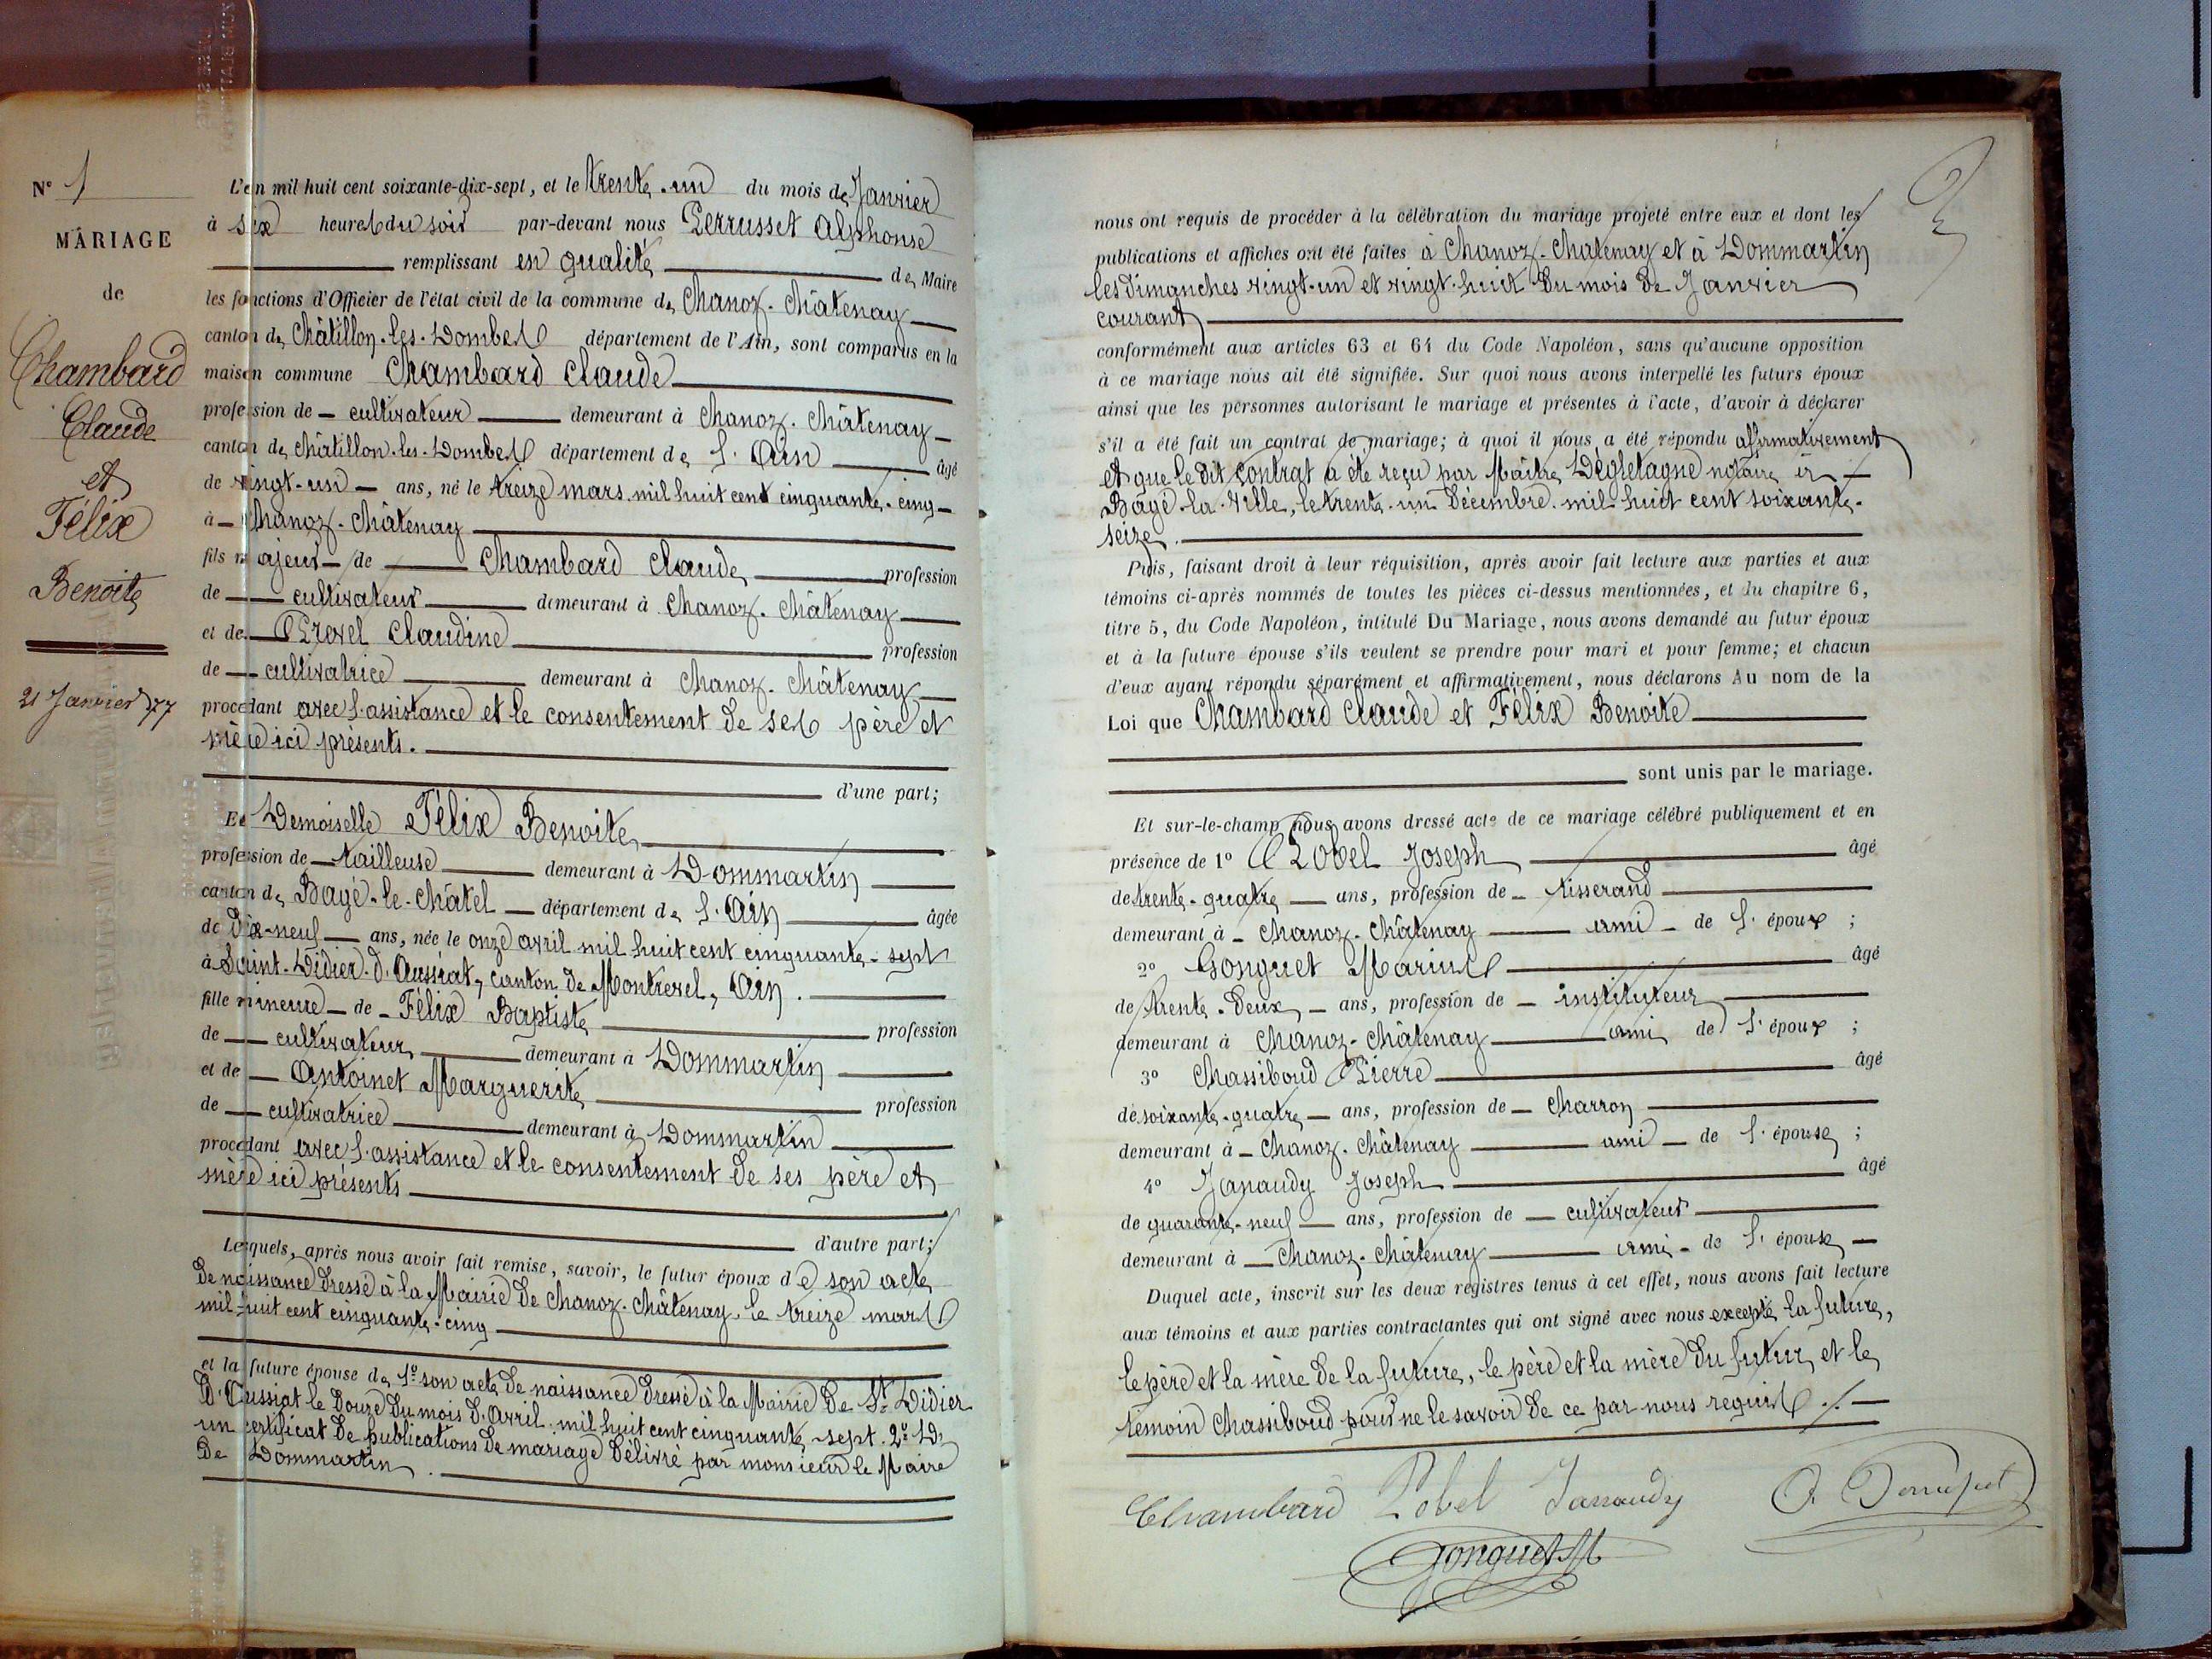 N° 1
MARIAGE
de
Chambard
Claude
et
Félix
Benoite
21 Janvier 77
L'an mil huit cent soixante-dix-sept, et le trente-un du mois de Janvier
à six heures du soir par-devant nous Perrusset Alphonse
remplissant en qualité de Maire
les fonctions d'Officier de l'état civil de la commune de Chanoz-Châtenay
canton de Châtillon-les-Dombes département de l'Ain, sont comparus en la
maison commune Chambard Claude
profession de cultivateur demeurant à Chanoz-Châtenay
canton de Châtillon-les-Dombes département de l'Ain âgé
de vingt-un ans, né le treize mars mil huit cent cinquante-cinq
à Chanoz-Châtenay
fils majeur de Chambard Claude profession
de cultivateur demeurant à Chanoz-Châtenay
et de Claudine profession
de cultivatrice demeurant à Chanoz-Châtenay
procédant avec l'assistance et le consentement de ses père et
mère ici présents.
d'une part;
Et Demoiselle Félix Benoite
profession de tailleuse demeurant à Dommartin
canton de Bagé-le-Châtel département de l'Ain âgée
de dix-neuf ans, née le onze avril mil huit cent cinquante-sept
à Saint-Didier-d'Aussiat, canton de Montrevel, Ain.
fille mineure de Félix Baptiste profession
de cultivateur demeurant à Dommartin
et de Antoinet Marguerite profession
de cultivatrice demeurant à Dommartin
procédant avec l'assistance et le consentement de ses père et
mère ici présents
d'autre part;
Lesquels, après nous avoir fait remise, savoir, le futur époux de son acte
de naissance dressé à la Mairie de Chanoz-Châtenay, le treize mars
mil huit cent cinquante-cinq
et la future épouse de 1° son acte de naissance dressé à la Mairie de St Didier
d'Aussiat le douze du mois d'Avril mil huit cent cinquante-sept. 2° D'
un certificat de publications de mariage délivré par monsieur le Maire
de Dommartin.
nous ont requis de procéder à la célébration du mariage projeté entre eux et dont les
publications et affiches ont été faites à Chanoz-Chatenay et à Dommartin
les dimanches vingt-un et vingt-huit du mois de Janvier
courant
conformément aux articles 63 et 64 du Code Napoléon, sans qu'aucune opposition
à ce mariage nous ait été signifiée. Sur quoi nous avons interpellé les futurs époux
ainsi que les personnes autorisant le mariage et présentes à l'acte, d'avoir à déclarer
s'il a été fait un contrat de mariage; à quoi il nous a été répondu affirmativement
et que le dit contrat a été reçu par Maître notaire à
Bagé-la-Ville, le trente-un décembre mil huit cent soixante-
seize.
Puis, faisant droit à leur réquisition, après avoir fait lecture aux parties et aux
témoins ci-après nommés de toutes les pièces ci-dessus mentionnées, et du chapitre 6,
titre 5, du Code Napoléon, intitulé Du Mariage, nous avons demandé au futur époux
et à la future épouse s'ils veulent se prendre pour mari et pour femme; et chacun
d'eux ayant répondu séparément et affirmativement, nous déclarons Au nom de la
Loi que Chambard Claude et Félix Benoite
sont unis par le mariage.
Et sur-le-champ nous avons dressé acte de ce mariage célébré publiquement et en
présence de 1° Lobel Joseph âgé
de trente-quatre ans, profession de tisserand
demeurant à Chanoz-Châtenay ami de l'époux ;
2° Gonguet Marius âgé
de trente-deux ans, profession de instituteur
demeurant à Chanoz-Châtenay ami de l'époux ;
3° Chassiboud Pierre âgé
de soixante-quatre ans, profession de Charron
demeurant à Chanoz-Châtenay ami de l'épouse ;
4° Janaudy Joseph âgé
de quarante-neuf ans, profession de cultivateur
demeurant à Chanoz-Châtenay ami de l'épouse
Duquel acte, inscrit sur les deux registres tenus à cet effet, nous avons fait lecture
aux témoins et aux parties contractantes qui ont signé avec nous excepté la future,
le père et la mère de la future, le père et la mère du futur, et le
témoin Chassiboud pour ne le savoir de ce par nous requis ./.
Chambard Lobel Janaudy
Gonguet M